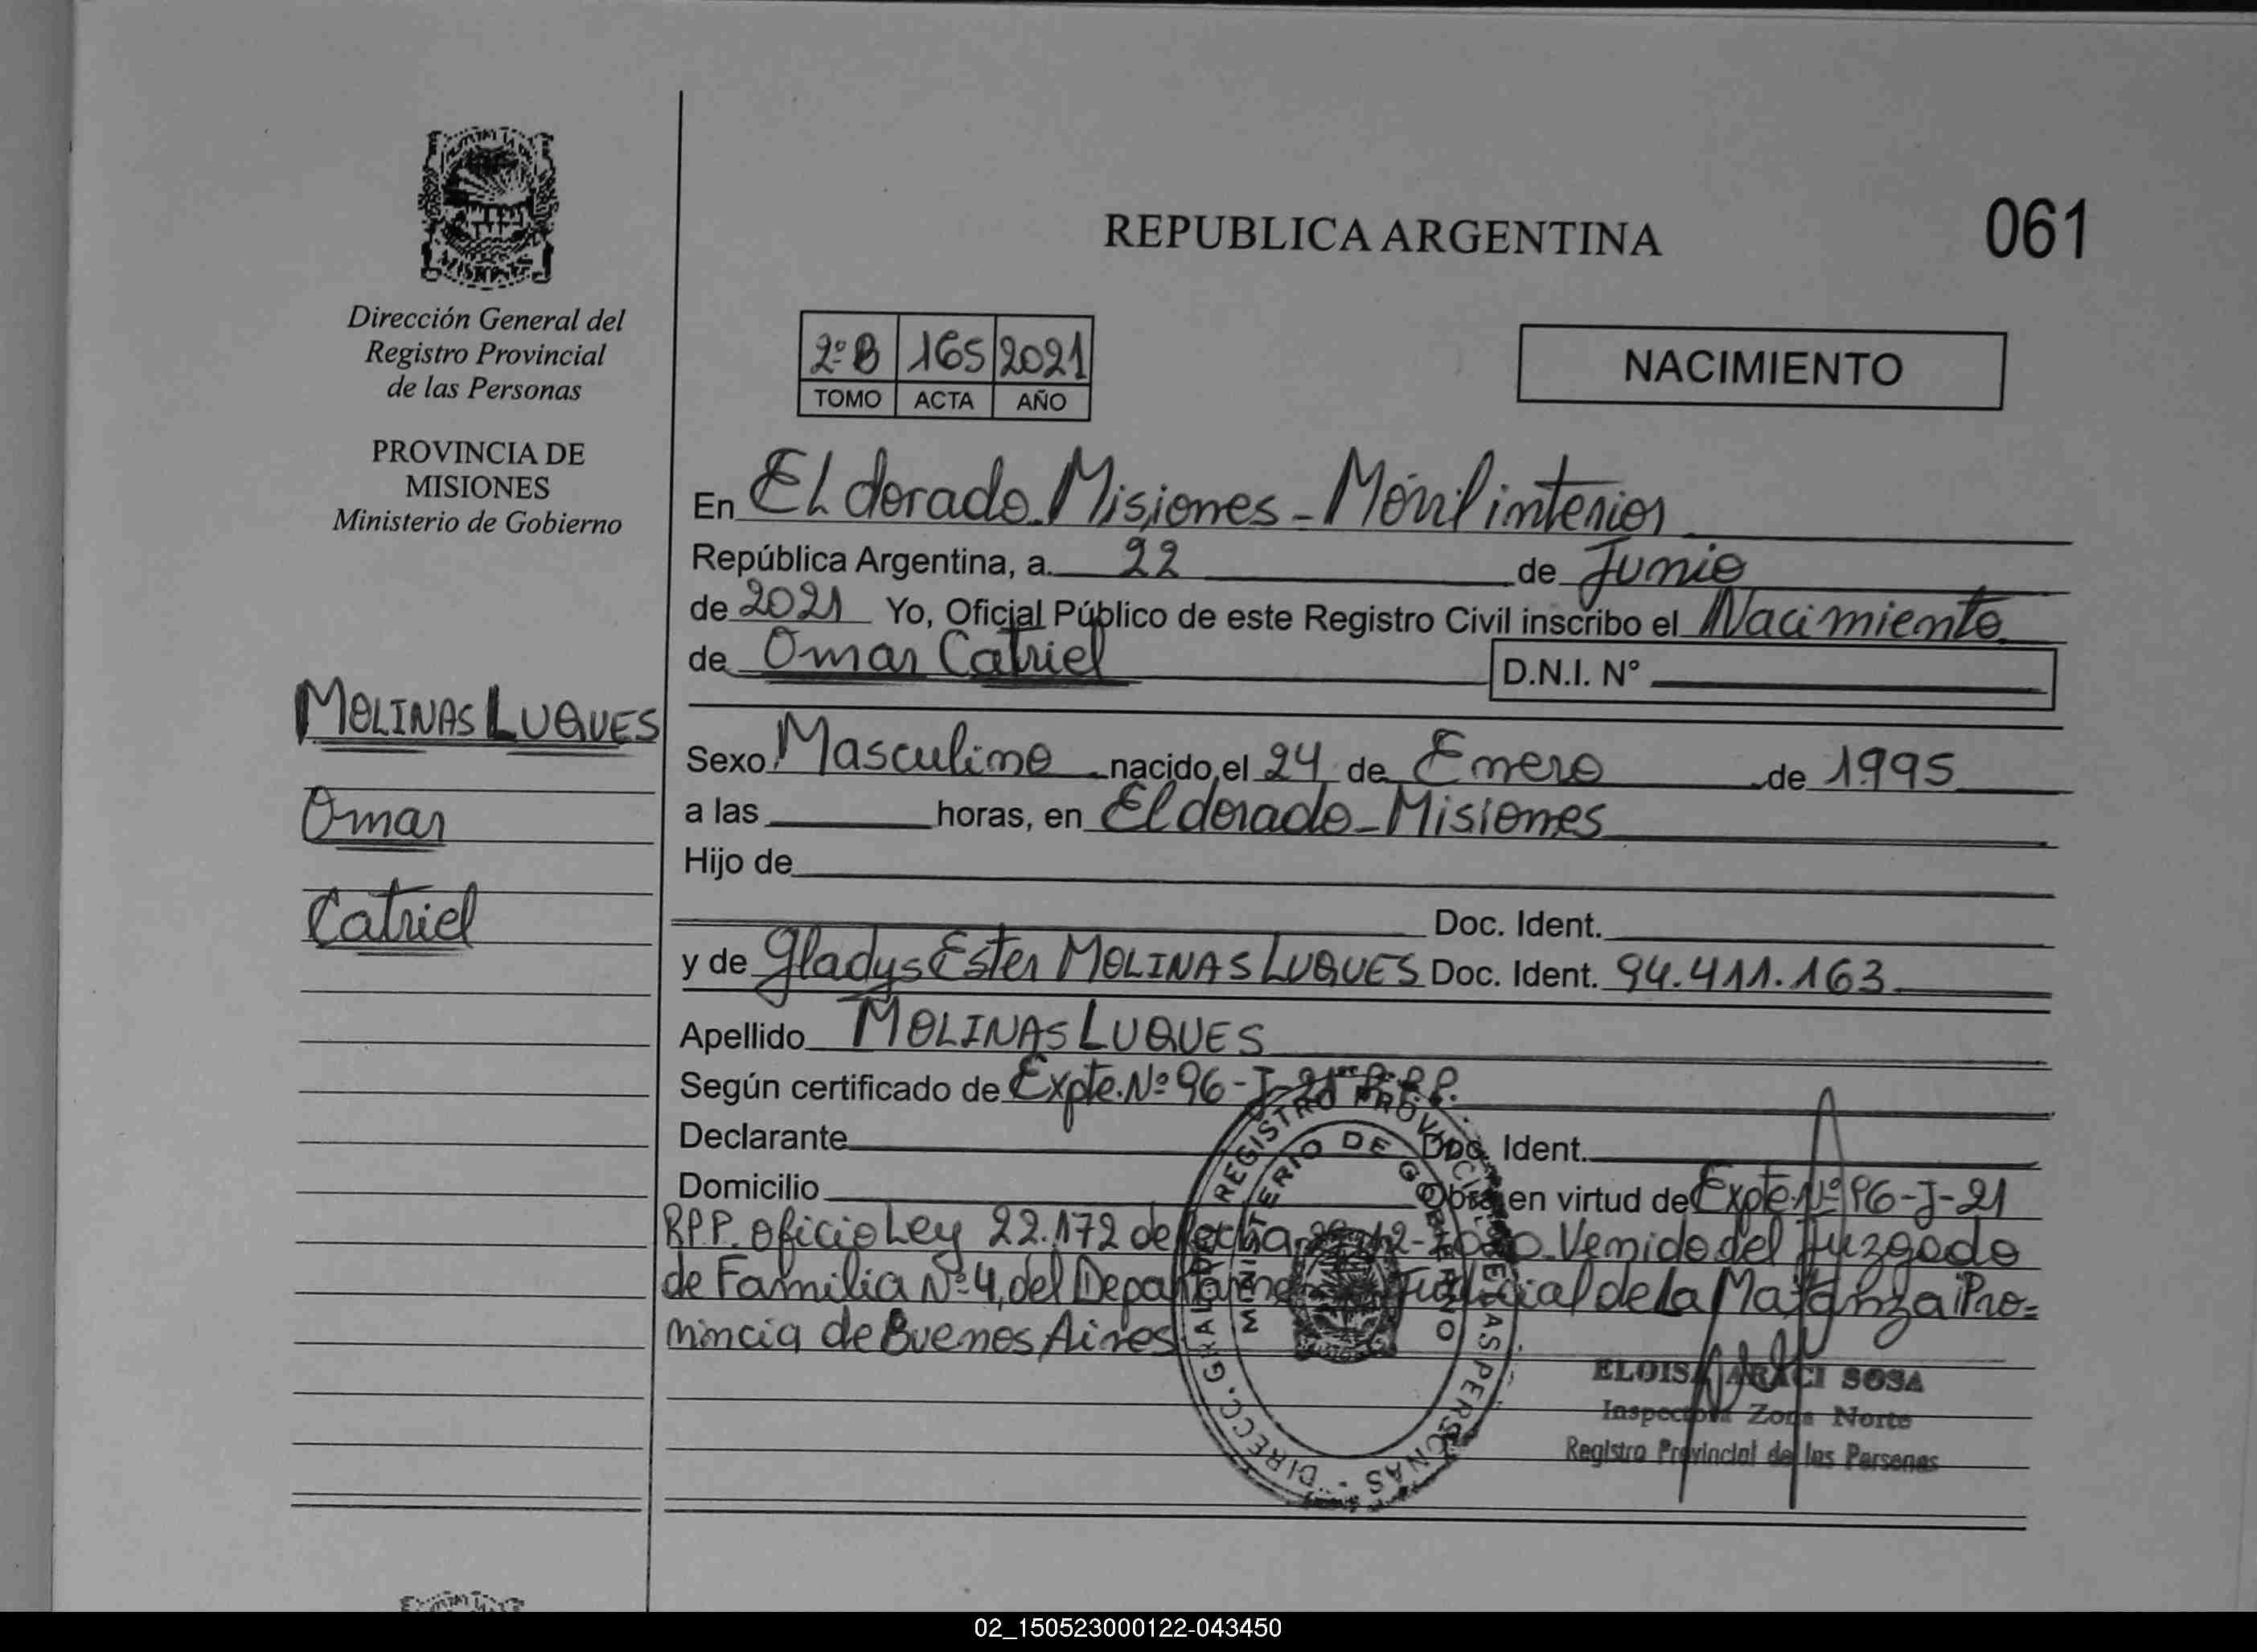 REPUBLICA ARGENTINA
061
Dirección General del
Registro Provincial
de las Personas
PROVINCIA DE
MISIONES
Ministerio de Gobierno
MOLINAS LUQUES
Omar
Catriel
2º B 165 2021
TOMO ACTA AÑO
NACIMIENTO
En El dorado Misiones - Móvil interior
República Argentina, a 22 de Junio
de 2021 Yo, Oficial Público de este Registro Civil inscribo el Nacimiento
de Omar Catriel D.N.I. Nº
Sexo Masculino nacido el 24 de Enero de 1995
a las horas, en El dorado - Misiones
Hijo de
Doc. Ident.
y de Gladys Ester MOLINAS LUQUES Doc. Ident. 94.411.163
Apellido MOLINAS LUQUES
Según certificado de Expte. Nº 96-J-21 R.P.P.
Declarante Doc. Ident.
Domicilio Obra en virtud de Expte Nº 96-J-21
R.P.P. oficio Ley 22.172 de fecha Venido del Juzgado
de Familia Nº 4, del Departamento Judicial de la Matanza Pro=
vincia de Buenos Aires
DIRECC. GRAL. DEL REGISTRO PROVINCIAL DE LAS PERSONAS -
MINISTERIO DE GOBIERNO
ELOISA ARACI SOSA
Inspectora Zona Norte
Registro Provincial de las Personas
02_150523000122-043450